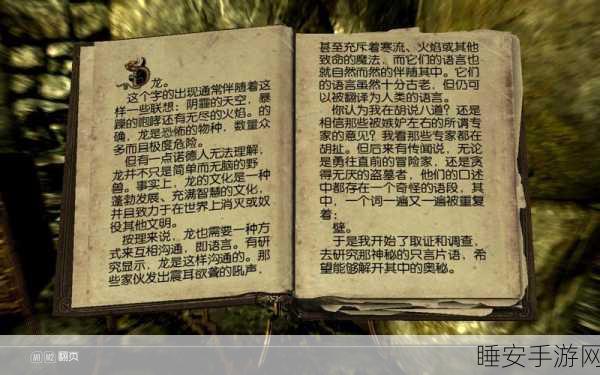 龙。
这个字的出现通常伴随着这
样一些联想：阴霾的天空，暴
躁的咆哮还有无尽的火焰。的
确，龙是恐怖的物种，数量众
多而且极度危险。
但有一点诺德人无法理解，
龙并不只是简单而无脑的野
兽。事实上，龙的文化是一种
蓬勃发展、充满智慧的文化，
并且致力于在世界上消灭或奴
役其他文明。
按理来说，龙也需要一种方
式来互相沟通，即语言。有研
究显示，龙是这样沟通的。那
些家伙发出震耳欲聋的吼声，
甚至充斥着寒流、火焰或其他
致命的魔法，而它们的语言也
就自然而然的伴随其中。它们
的语言虽然十分古老，但仍可
以被翻译为人类的语言。
你认为我在胡说八道？还是
相信那些被嫉妒左右的所谓专
家的意见？我看那些专家都在
胡扯。但后来有传闻说，无论
是勇往直前的冒险家，还是贪
得无厌的盗墓者，他们的口述
中都存在一个奇怪的语段，其
中，一个词一遍又一遍被重复
着：
壁。
于是我开始了取证和调查，
去研究那神秘的只言片语，希
望能够解开其中的奥秘。
M1 M2 翻页
睡安手游网